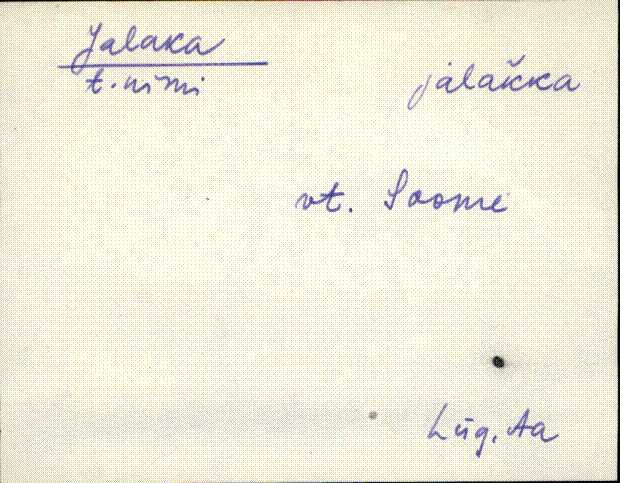 Jalaka
t. nimi
jalakka
vt. Soome
Lüg. Aa